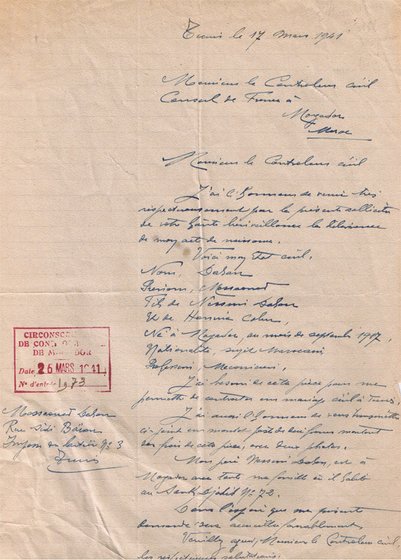 Tunis le 17 Mars 1941
Monsieur le Controleur civil
Consul de France à
Mogador
Maroc
Monsieur le Controleur civil
J'ai l'honneur de venir très
respectueusement par la présente solliciter
de votre haute bienveillance la délivrance
de mon acte de naissance.
Voici mon état civil.
Nom,
Prénom, Messaoud
Fils de Nessim
Et de Hannia Cohen,
Né à Mogador, au mois de septembre 1917
Nationalité, sujet Marocain
Profession, Mecanicien,
J'ai besoin de cette pièce pour me
permettre de contracter un mariage civil à Tunis.
J'ai aussi l'honneur de vous
ci-joint un mandat poste de dix francs montant
des frais de cette pièce, avec deux photos.
Mon père Nessim est à
Mogador avec toute ma famille et il habite
au N° 72.
Dans l'espoir que ma présente
demande sera accueillie favorablement,
Veuillez agréer, Monsieur le Controleur civil
les respectueuses salutations.
CIRCONSC
DE CONT
DE MOGADOR
Date 26 MARS 1941
N° d'entrée 1973
Messaoud
Rue Sidi
Impasse N° 3
Tunis